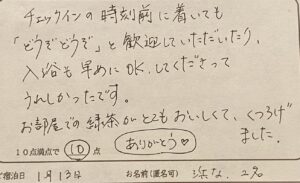 チェックインの時刻前に着いても
「どうぞどうぞ」と歓迎していただいたり、
入浴も早めにOK.してくださって
うれしかったです。
お部屋での緑茶がとてもおいしくて、くつろげ
ました。
10点満点で 10 点 ありがとう♡
ご宿泊日 1月13日 お名前(匿名可) 浜な